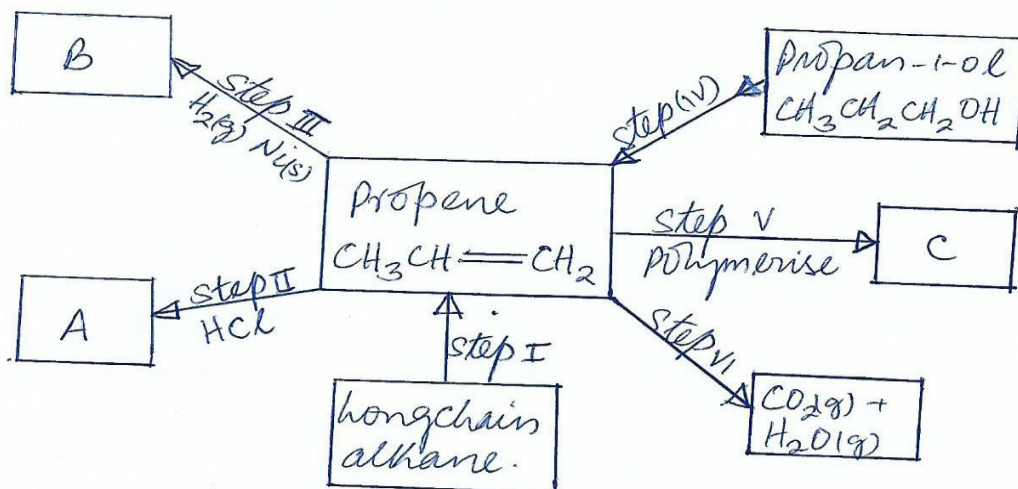 B
step III
H2(g) Ni(s)
Propan-1-ol
CH3CH2CH2OH
step(IV)
Propene
CH3CH=CH2
step V
polymerise
C
step II
HCl
A
step I
Longchain
alkane.
step VI
CO2(g) +
H2O(g)